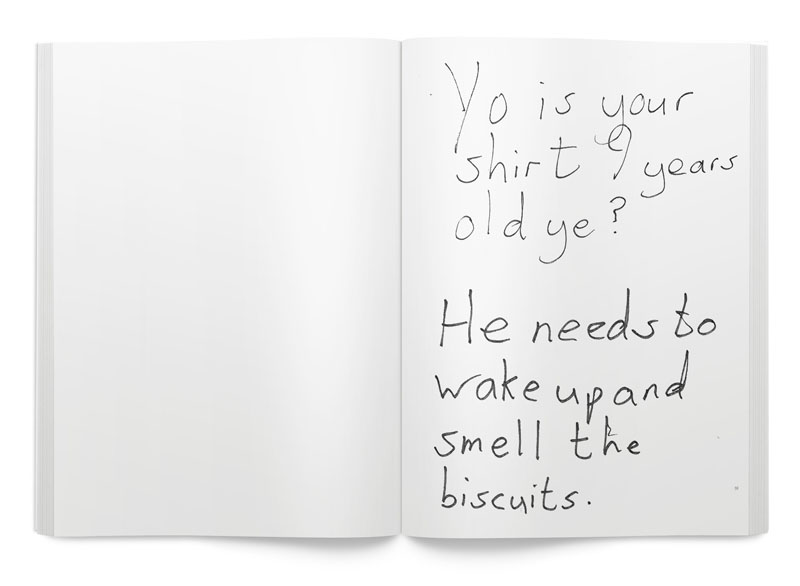 Yo is your
shirt 9 years
old ye?
He needs to
wake up and
smell the
biscuits.